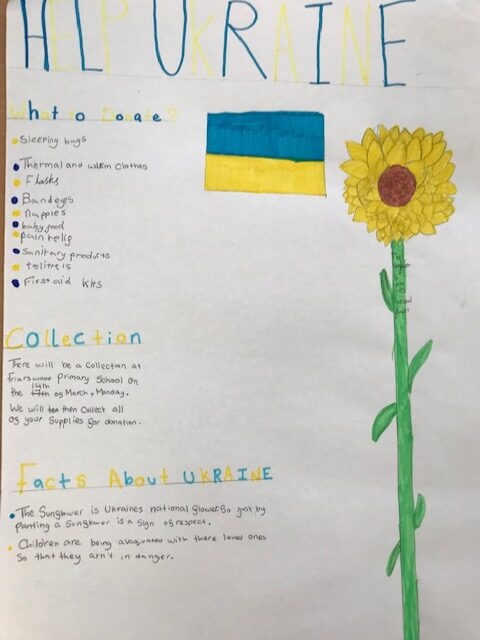 HELP UKRAINE
What to Donate?
Sleeping bags
Thermal and warm clothes
Flasks
Bandeges
Nappies
baby food
pain relif
Sanitary products
toiltreis
First aid kits
Collection
There will be a collection at
Friarswood Primary School on
the 14th of March, Monday.
We will then Collect all
of your Supplies for donation.
Facts About UKRAINE
The Sunflower is Ukraines national flower So just by
planting a Sunflower is a sign of respect.
Children are being avaquated with there loved ones
So that they arn't in danger.